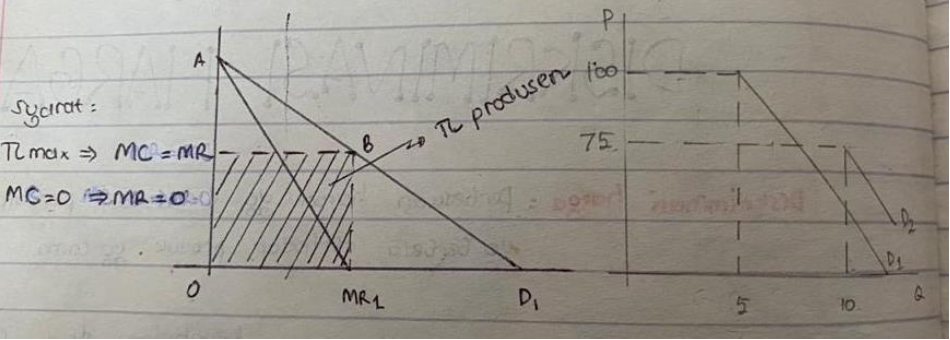 A
Syarat :
π max ⇒ MC = MR
MC = 0 ⇒ MR = 0
B
π produsen
O
MR1
D1
P
100
75
D2
D1
5
10
Q